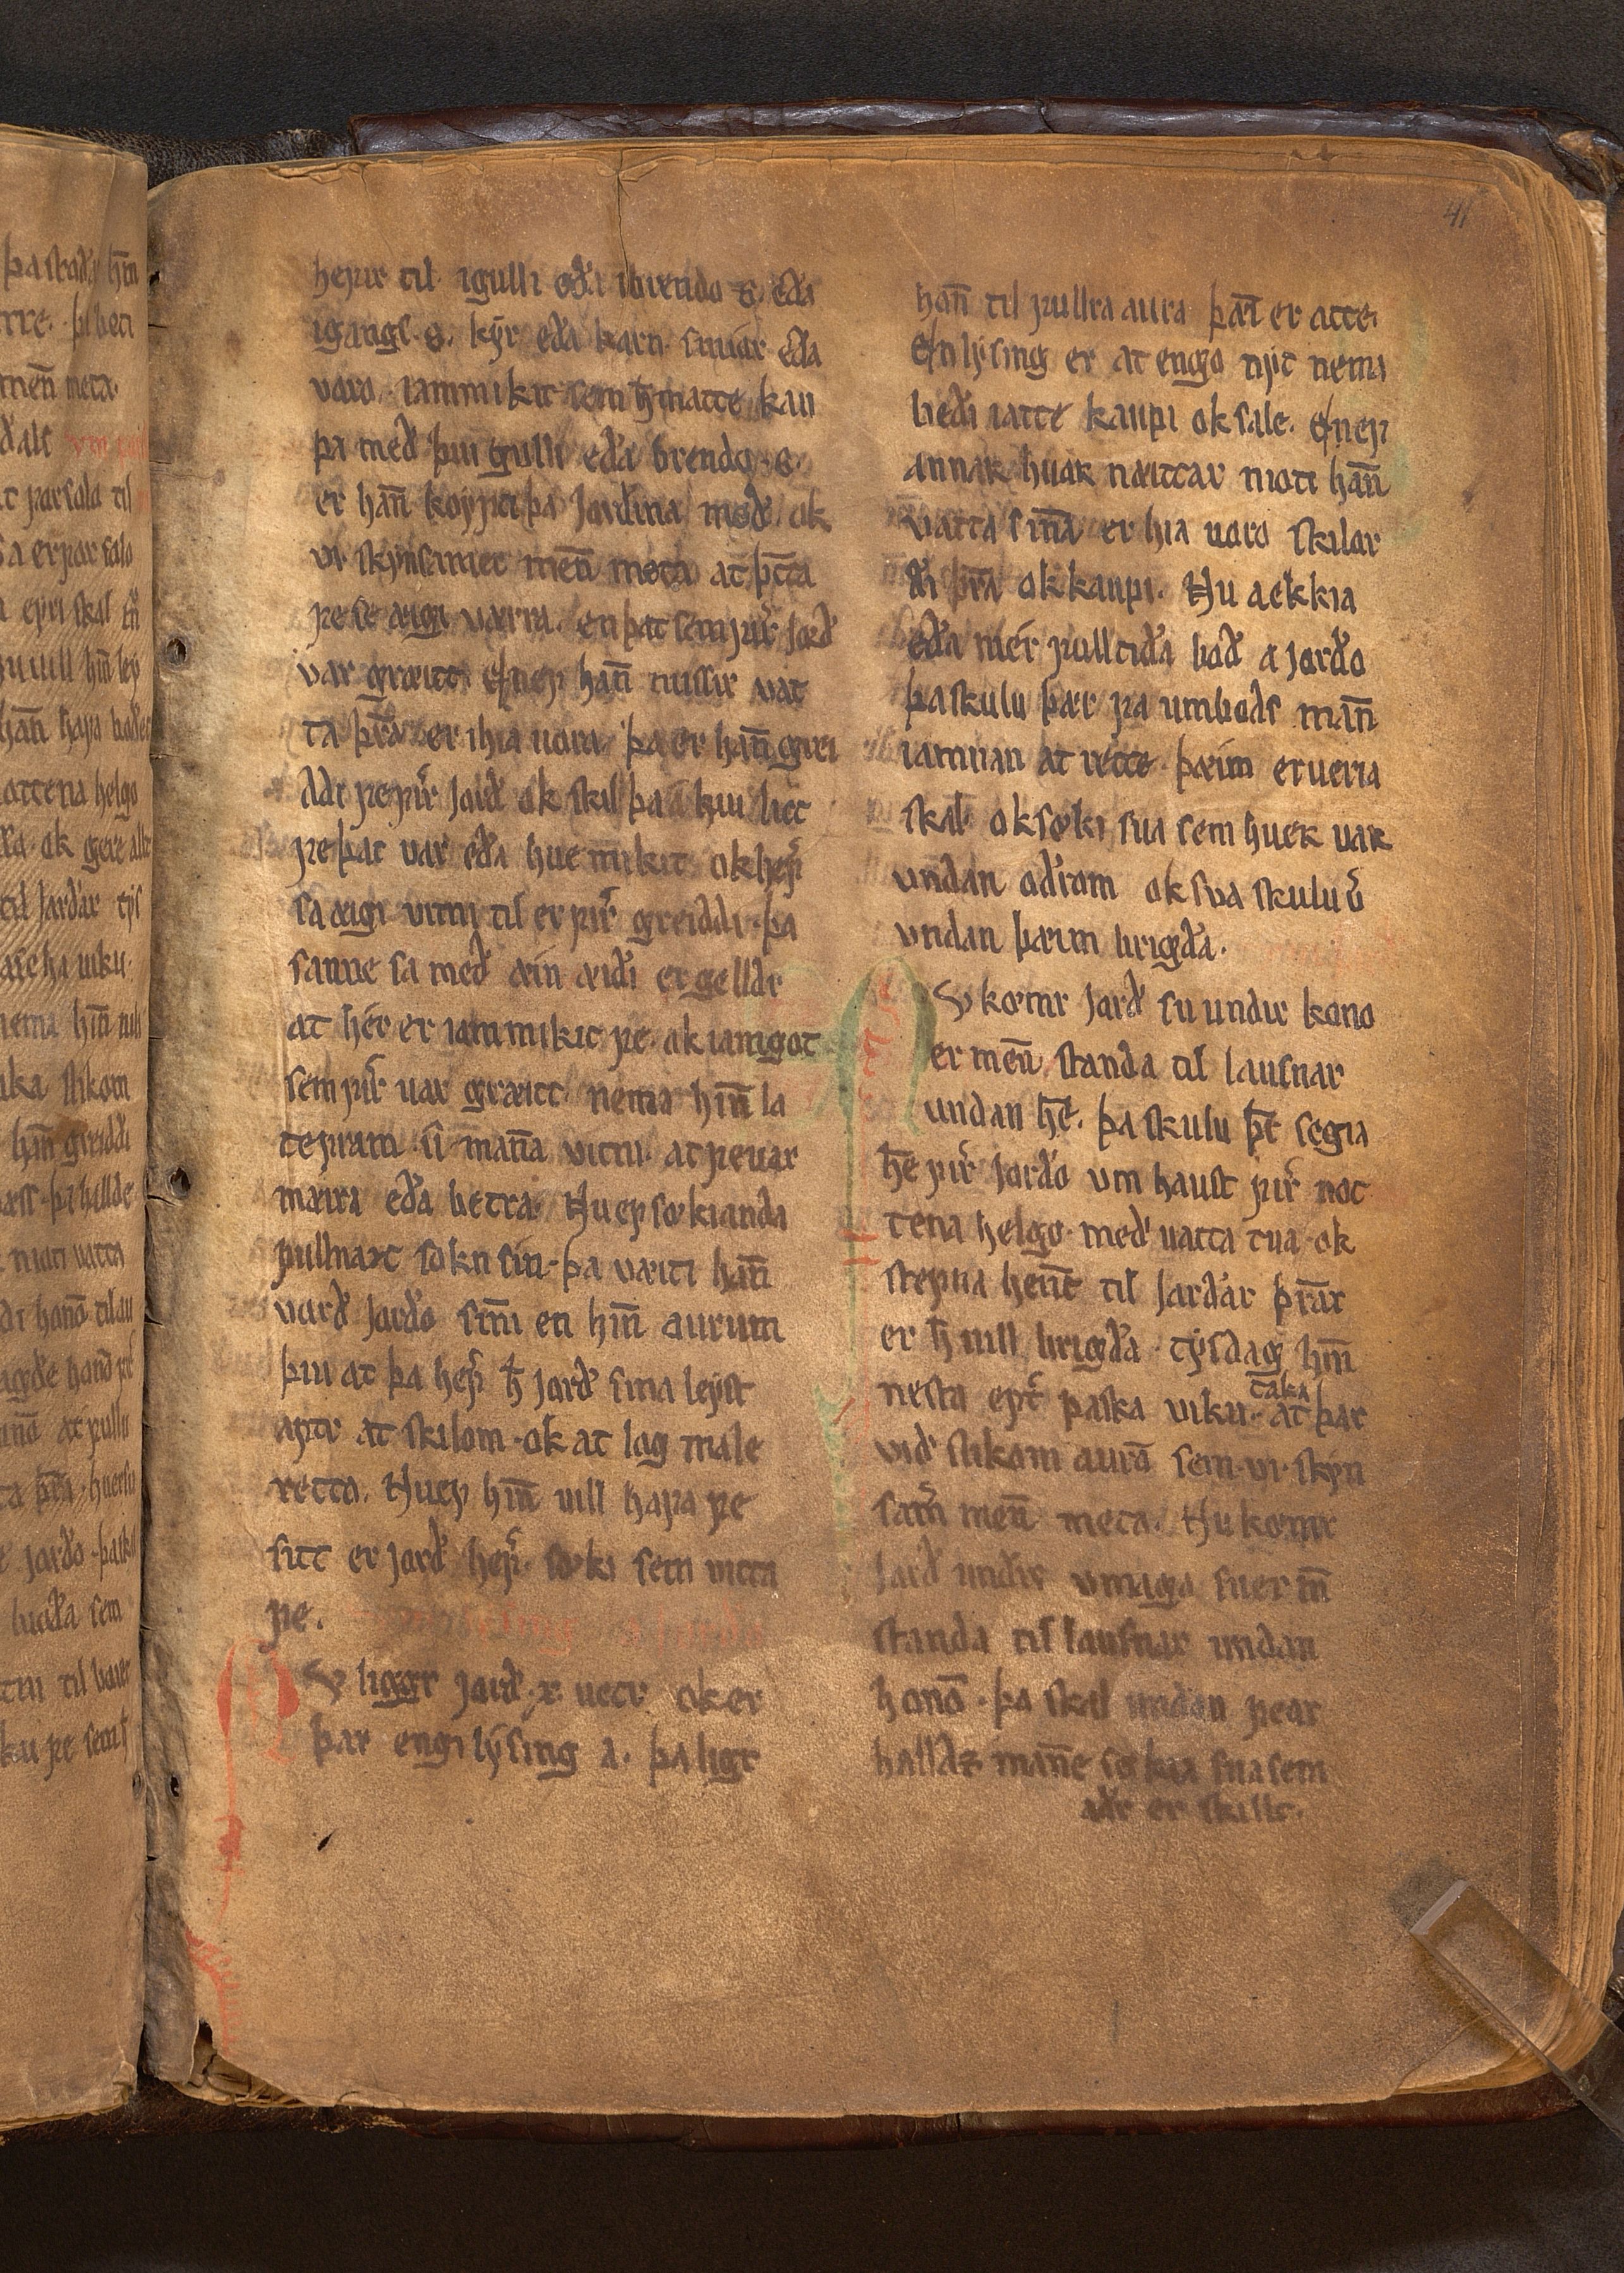 hefir til. i gulli eða i brendo .s. eða
igangs .s. kýr eða karn. smíar eða
voro. iammikit sem h̄ matte kau
pa með þui gulli eða brendo .s.
er han̄ kæypti þa Jardina með ok
vi skynsamer men̄ meta at þ̄tta
fe se æigi værra. en þat sem fẏr Jord
var græitt. En ef han̄ missir vat
ta þr̄a er ihia uoro. þa er han̄ græi
ddi fe fẏr Jorð ok skil þa a huilict
fe þat var eða hue mikit ok hef̛
sa æigi vitni til er fẏr greiddi. þa
sanne sa með æin æiði er gelldr
at hér er iammikit fe. ok iamgot
sem fẏr uar græitt. nema hin̄ la
te fram .ii. man̄a vitni. at fe uar
mæira eða betra. Nu ef sǿkianda
fullnazt sokn sín. þa væiti han̄
varð Jorðo sin̄i en hin̄ aurum
þui at þa hef̛ h̄ Jorð sina leyst
aptr at skilom. ok at lag male
retto. Nu ef hin̄ uill hafa fe
sitt er Jorð hef̛. sǿki sem vitta
fe.
Nv liggr Jorð .x. uetr ok er
þar engi lysing a. þa ligr
han̄ til fullra aura þǣi er atte.
En lysing er at engo nyt nemi
beði iatte kaupi ok sale. En ef
annar huar næittar moti han̄
vatta sin̄a er hia uoro skilor
ði þr̄a ok kaupi. Nu a ekkia
eða mér fulltiða boð a Jorðo
þa skulu þær fa umboðs man̄
iamnan at rette. þæim er ueria
skal ok sǿki sua sem huer uar
vndan oðrom ok sva skulu v̄
vndan þæim brigða.
Nv kǿmr Jorð su undir kono
er men̄ standa til lausnar
undan hē̄. þa skulu þr̄ segia
hē̄ fẏr Jorðo vm haust fẏr not
tena helgo. með uatta tua. ok
stefna hen̄e til Jarðar þr̄ar
er h̄ uill brigða. tysdag hin̄
nesta eptˀ paska viku. at taka þar
við slikom aurō sem .vi. skyn
samˀ men̄ meta. Nu kǿmr
Jorð undir vmaga su er m̄
standa til lausnar undan
honō. þa skal undan fear
halldz man̄e sǿkia sua sem
aðr er skillt.